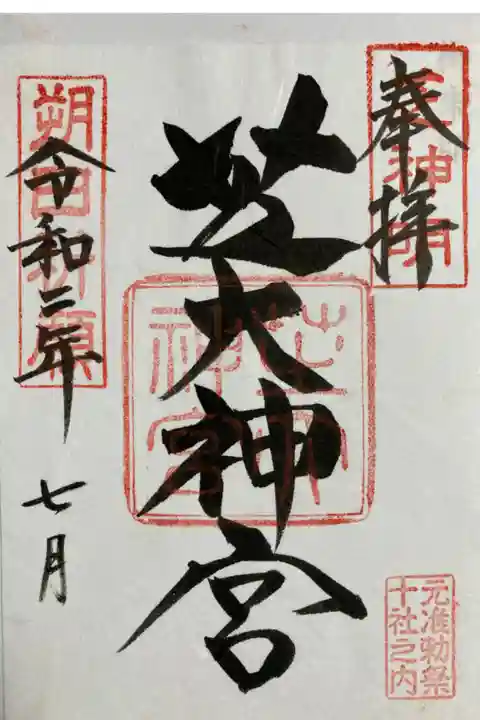 奉拝
芝大神宮
令和二年
七月
朔日祈願
芝大神宮
元准勅祭
十社之内